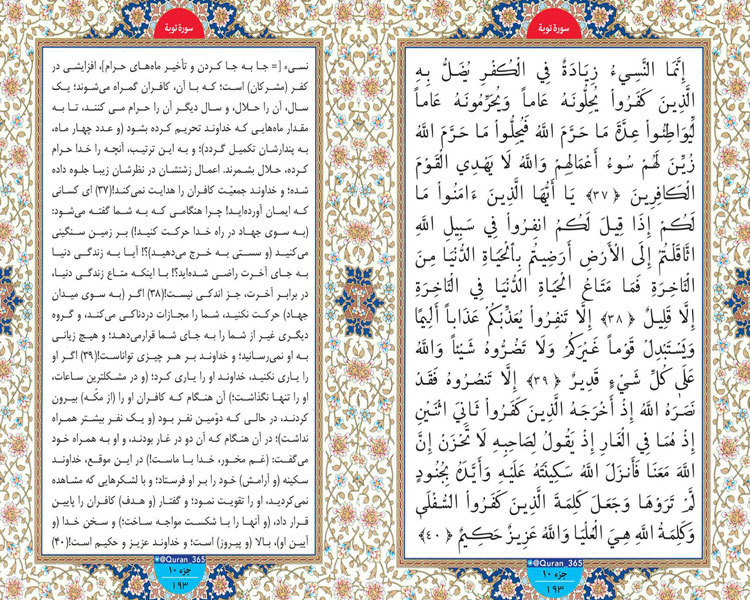 سورة توبة
إِنَّمَا النَّسِيءُ زِيَادَةٌ فِي الْكُفْرِ يُضَلُّ بِهِ
الَّذِينَ كَفَرُواْ يُحِلُّونَهُ عَاماً وَيُحَرِّمُونَهُ عَاماً
لِّيُوَاطِؤُواْ عِدَّةَ مَا حَرَّمَ اللّهُ فَيُحِلُّواْ مَا حَرَّمَ اللّهُ
زُيِّنَ لَهُمْ سُوءُ أَعْمَالِهِمْ وَاللّهُ لَا يَهْدِي الْقَوْمَ
الْكَافِرِينَ ﴿۳۷﴾ يَا أَيُّهَا الَّذِينَ ءَامَنُواْ مَا
لَكُمْ إِذَا قِيلَ لَكُمُ انفِرُواْ فِي سَبِيلِ اللّهِ
اثَّاقَلْتُمْ إِلَى الْأَرْضِ أَرَضِيتُم بِالْحَيَاةِ الدُّنْيَا مِنَ
الْآخِرَةِ فَمَا مَتَاعُ الْحَيَاةِ الدُّنْيَا فِي الْآخِرَةِ
إِلَّا قَلِيلٌ ﴿۳۸﴾ إِلَّا تَنفِرُواْ يُعَذِّبْكُمْ عَذَاباً أَلِيمًا
وَيَسْتَبْدِلْ قَوْماً غَيْرَكُمْ وَلَا تَضُرُّوهُ شَيْئاً وَاللّهُ
عَلَى كُلِّ شَيْءٍ قَدِيرٌ ﴿۳۹﴾ إِلَّا تَنصُرُوهُ فَقَدْ
نَصَرَهُ اللّهُ إِذْ أَخْرَجَهُ الَّذِينَ كَفَرُواْ ثَانِيَ اثْنَيْنِ
إِذْ هُمَا فِي الْغَارِ إِذْ يَقُولُ لِصَاحِبِهِ لَا تَحْزَنْ إِنَّ
اللّهَ مَعَنَا فَأَنزَلَ اللّهُ سَكِينَتَهُ عَلَيْهِ وَأَيَّدَهُ بِجُنُودٍ
لَّمْ تَرَوْهَا وَجَعَلَ كَلِمَةَ الَّذِينَ كَفَرُواْ السُّفْلَى
وَكَلِمَةُ اللّهِ هِيَ الْعُلْيَا وَاللّهُ عَزِيزٌ حَكِيمٌ ﴿۴۰﴾
@Quran_365
جزء ۱۰
۱۹۳
سورة توبة
نسیء [= جا به جا کردن و تأخیر ماه‌های حرام]، افزایشی در
کفر (مشرکان) است؛ که با آن، کافران گمراه می‌شوند؛ یک
سال، آن را حلال، و سال دیگر آن را حرام می کنند، تا به
مقدار ماه‌هایی که خداوند تحریم کرده بشود (و عدد چهار ماه،
به پندارشان تکمیل گردد)؛ و به این ترتیب، آنچه را خدا حرام
کرده، حلال بشمرند. اعمال زشتشان در نظرشان زیبا جلوه داده
شده؛ و خداوند جمعیّت کافران را هدایت نمی‌کند!(۳۷) ای کسانی
که ایمان آورده‌اید! چرا هنگامی که به شما گفته می‌شود:
(به سوی جهاد در راه خدا حرکت کنید!) بر زمین سنگینی
می‌کنید (و سستی به خرج می‌دهید)؟! آیا به زندگی دنیا
به جای آخرت راضی شده‌اید؟! با اینکه متاع زندگی دنیا،
در برابر آخرت، جز اندکی نیست!(۳۸) اگر (به سوی میدان
جهاد) حرکت نکنید، شما را مجازات دردناکی می‌کند، و گروه
دیگری غیر از شما را به جای شما قرارمی‌دهد؛ و هیچ زیانی
به او نمی‌رسانید؛ و خداوند بر هر چیزی تواناست!(۳۹) اگر او
را یاری نکنید، خداوند او را یاری کرد؛ (و در مشکلترین ساعات،
او را تنها نگذاشت؛) آن هنگام که کافران او را (از مکّه) بیرون
کردند، در حالی که دوّمین نفر بود (و یک نفر بیشتر همراه
نداشت)؛ در آن هنگام که آن دو در غار بودند، و او به همراه خود
می‌گفت: (غم مخور، خدا با ماست!) در این موقع، خداوند
سکینه (و آرامش) خود را بر او فرستاد؛ و با لشکرهایی که مشاهده
نمی‌کردید، او را تقویت نمود؛ و گفتار (و هدف) کافران را پایین
قرار داد، (و آنها را با شکست مواجه ساخت؛) و سخن خدا (و
آیین او)، بالا (و پیروز) است؛ و خداوند عزیز و حکیم است!(۴۰)
@Quran_365
جزء ۱۰
۱۹۳